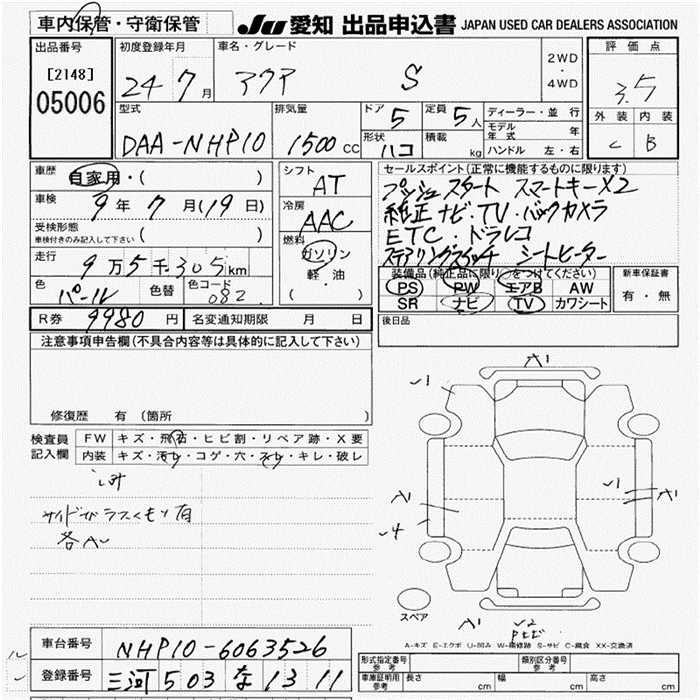 車内保管・守衛保管
JU 愛知 出品申込書 JAPAN USED CAR DEALERS ASSOCIATION
出品番号
[2148]
05006
初度登録年月
24年7月
車名・グレード
アクア S
2WD
・
4WD
評価点
3.5
外装 内装
C B
型式
DAA-NHP10
排気量
1500cc
ドア 5
定員 5人
形状 ハコ
積載 kg
ディーラー・並行
モデル年式 年
ハンドル 左・右
車歴
自家用・( )
車検
9年7月(19日)
受検形態
車検付きのみ記入して下さい ( )
走行
9万5千305km
色 パール
色替
色コード 082
シフト
AT
冷房
AAC
燃料
ガソリン
軽・油
( )
セールスポイント(正常に機能するものに限ります)
プッシュスタート スマートキーX2
純正ナビ・TV・バックカメラ
ETC・ドラレコ
ステアリングスイッチ シートヒーター
装備品(純正品に限り○をつけてください)
PS PW エアB AW
SR ナビ TV カワシート
新車保証書
有・無
R券 9980円
名変通知期限 月 日
後日品
注意事項申告欄(不具合内容等は具体的に記入して下さい)
修復歴 有(箇所 )
検査員
記入欄
FW キズ・飛石・ヒビ割・リペア跡・X要
内装 キズ・汚れ・コゲ・穴・スレ・キレ・破レ
サイドガラスくもり有
各A
A1
✓1
A1
✓4
✓1
A1
スペア
A1
✓2
A-キズ E-エクボ U-凹み W-補修跡 S-サビ C-腐食 XX-交換済
車台番号
NHP10-6063526
登録番号
三河503な1311
型式指定番号
参考
類別区分番号
参考
車庫証明用
参考
長さ cm
幅 cm
高さ cm